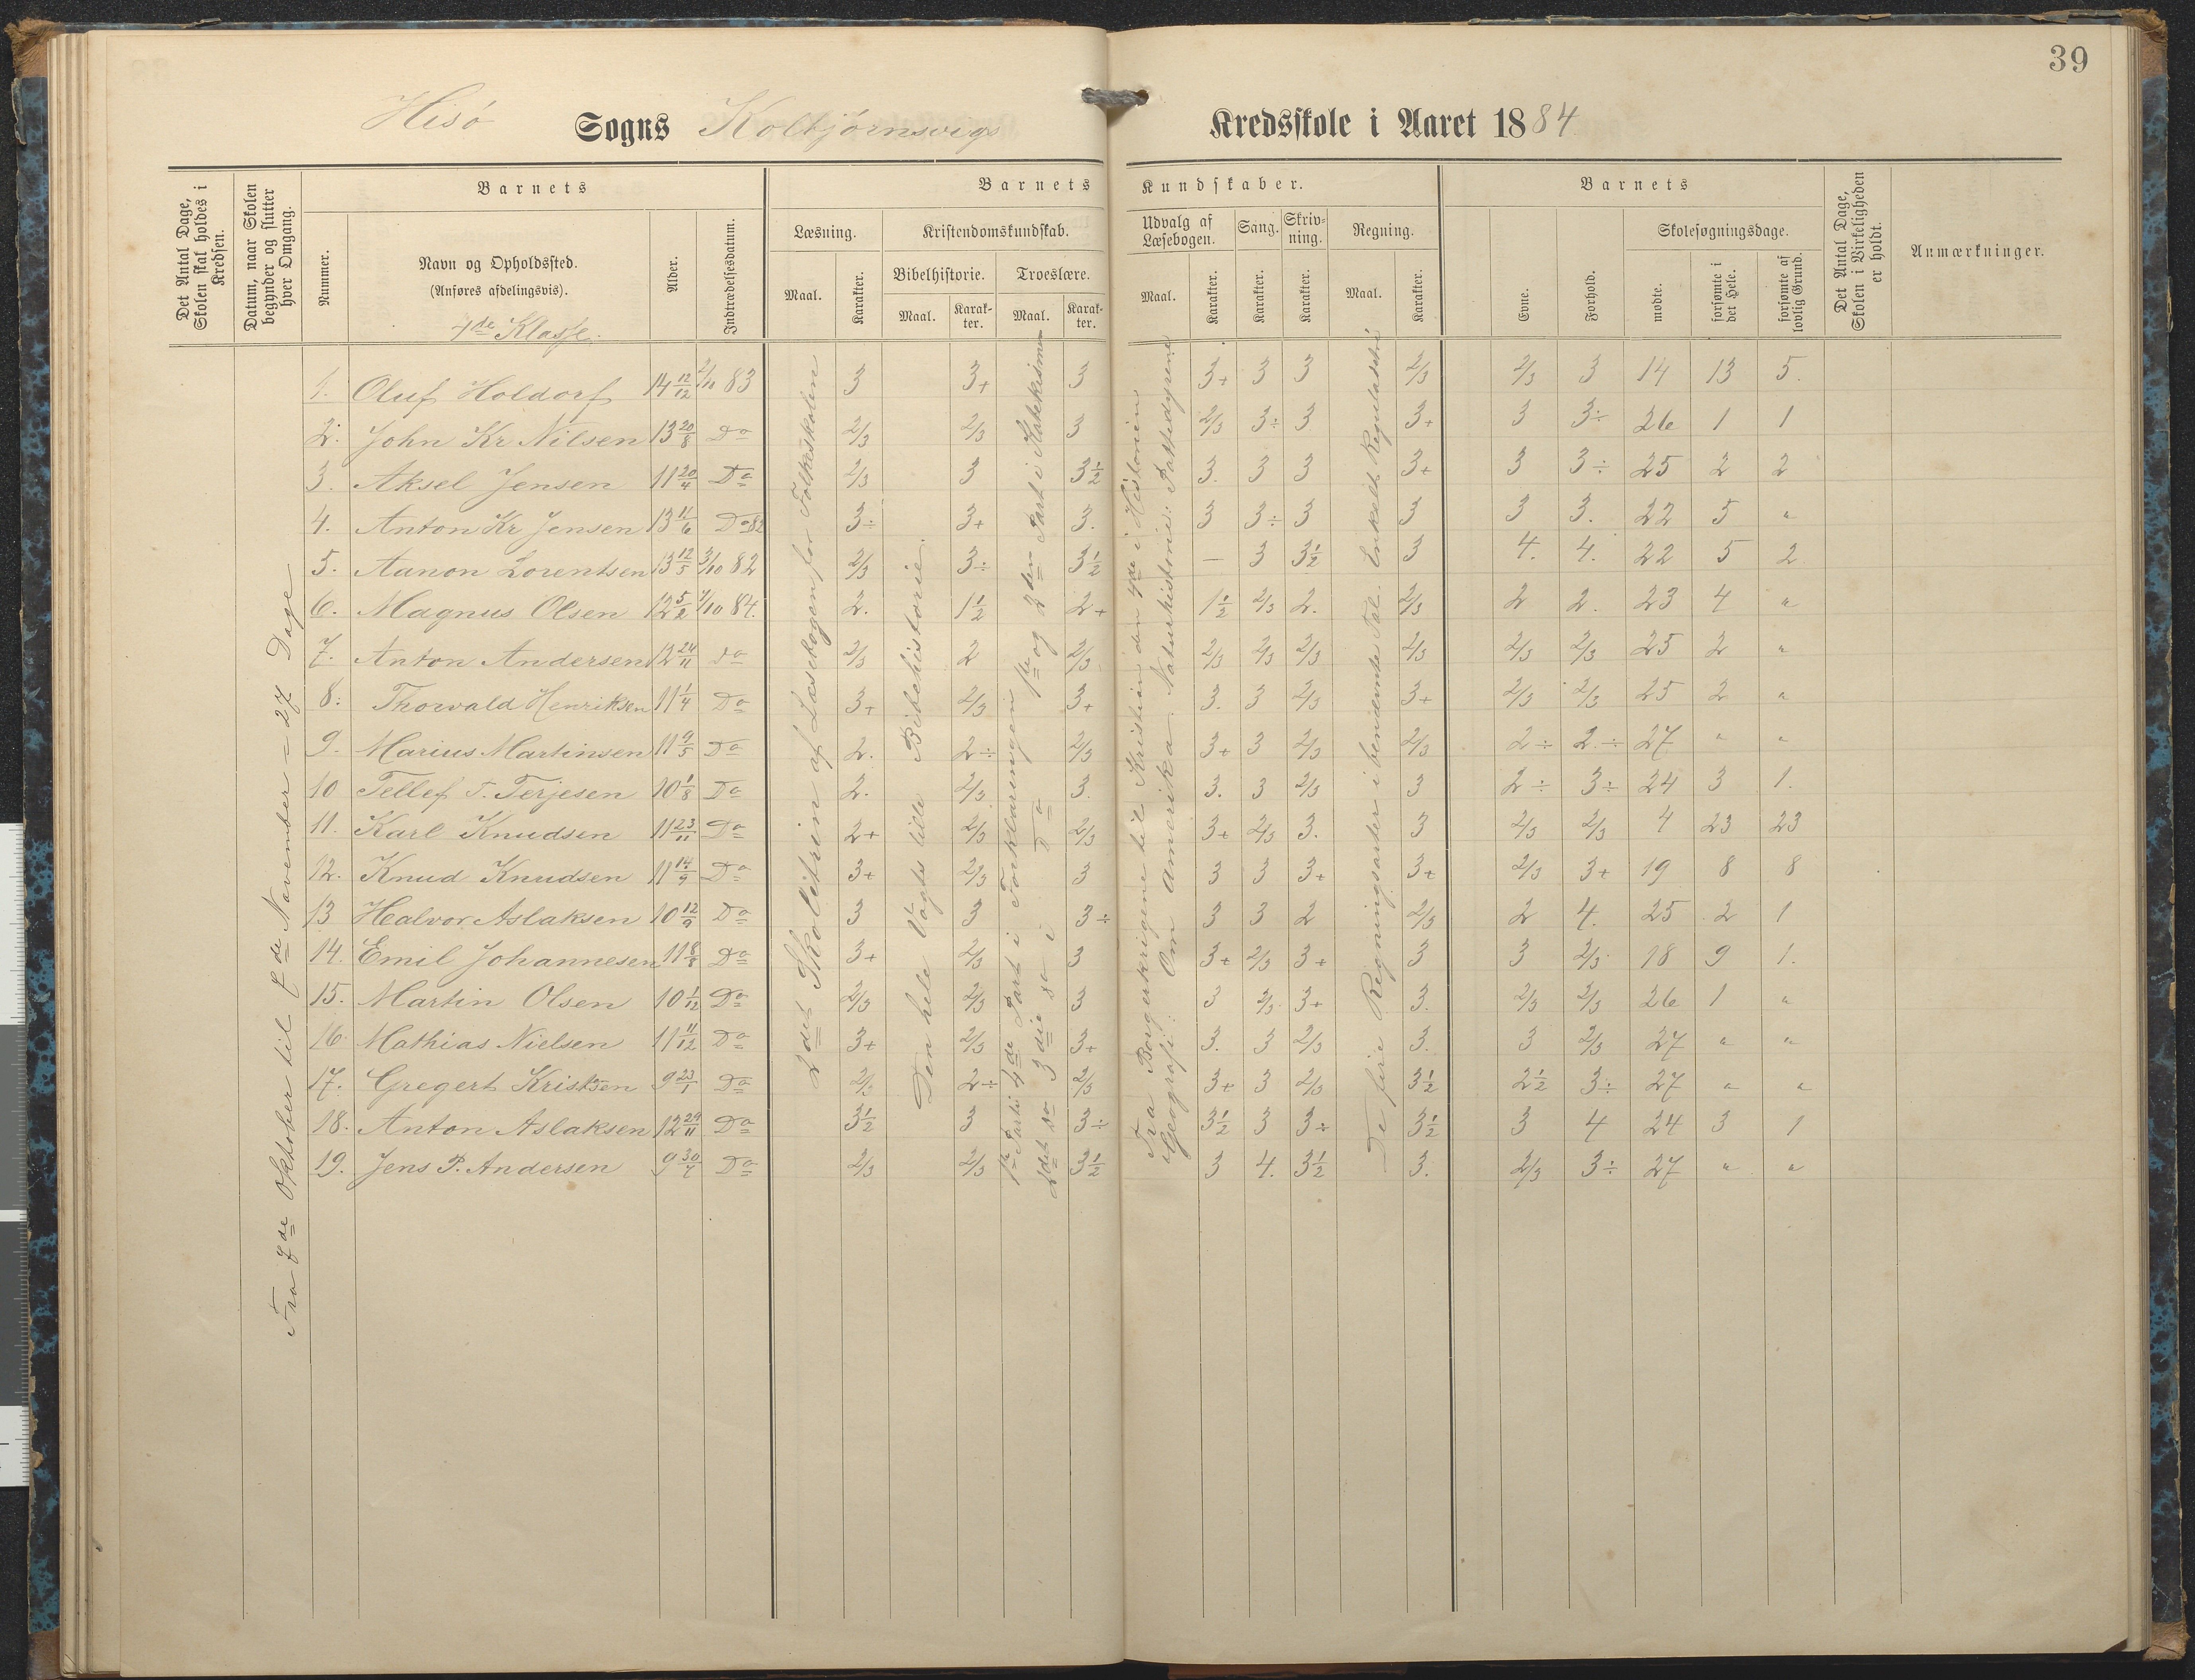 39
Hisö Sogns Kolbjørnsvigs Kredsskole i Aaret 1884
Det Antal Dage, Skolen skal holdes i Kredsen.
Datum, naar Skolen begynder og slutter hver Omgang.
Barnets
Nummer.
Navn og Opholdssted.
(Anføres afdelingsvis).
Alder.
Indtrædelsesdatum.
Barnets Kundskaber.
Læsning.
Maal.
Karakter.
Kristendomskundskab.
Bibelhistorie.
Maal.
Karak-
ter.
Troeslære.
Maal.
Karak-
ter.
Udvalg af Læsebogen.
Maal.
Karakter.
Sang.
Karakter.
Skriv-
ning.
Karakter.
Regning.
Maal.
Karakter.
Barnets
Evne.
Forhold.
Skolesøgningsdage.
mødte.
forsømte i det Hele.
forsømte af lovlig Grund.
Det Antal Dage, Skolen i Virkeligheden er holdt.
Anmærkninger.
de Klasse.
Fra 7de Oktober til de November = 27 Dage
2det Skoletrin af Læsebogen for Folkeskolen
Den hele Vogts lille Bibelhistorie.
1ste Parti 4de Part i Forklaringen 1ste og 2den Part i Katekismen
2det Do 3die Do i Do
Fra Borgerkrigene til Kristian den 4de i Historien
Geografi: Om Amerika. Naturhistorie: Pattedyrene
De fire Regningsarter i benævnte Tal. Enkelt Reguladetri
1. Oluf Holdorf 14 12/12 2/10 83 3 3+ 3 3+ 3 3 2/3 2/3 3 14 13 5.
2. John Kr Nilsen 13 20/8 Do 2/3 2/3 3 2/3 3÷ 3 3+ 3 3÷ 26 1 1
3. Aksel Jensen 11 20/4 Do 2/3 3 3½ 3. 3 3 3+ 3 3÷ 25 2 2
4. Anton Kr Jensen 13 11/6 Do 82 3÷ 3+ 3. 3 3÷ 3 3 3 3. 22 5 "
5. Aanon Lorentsen 13 12/5 3/10 82 2/3 3÷ 3½ — 3 3½ 3 4. 4. 22 5 2
6. Magnus Olsen 12 5/2 7/10 84. 2. 1½ 2+ 1½ 2/3 2. 2/3 2 2. 23 4 "
7. Anton Andersen 12 24/11 Do 2/3 2 2/3 2/3 2/3 2/3 2/3 2/3 2/3 25 2 "
8. Thorvald Henriksen 11 1/4 Do 3+ 2/3 3+ 3. 3 2/3 3+ 2/3 2/3 25 2 "
9. Marius Martinsen 11 9/5 Do 2. 2÷ 2/3 3+ 3 2/3 2/3 2÷ 2÷ 27 " "
10 Tellef T. Terjesen 10 1/8 Do 2. 2/3 3. 3. 3 2/3 3 2÷ 3÷ 24 3 1.
11. Karl Knudsen 11 23/11 Do 2+ 2/3 2/3 3+ 2/3 3. 3 2/3 2/3 4 23 23
12. Knud Knudsen 11 14/9 Do 3+ 2/3 3 3 3 3+ 3+ 2/3 3+ 19 8 8
13 Halvor Aslaksen 10 12/9 Do 3 3 3÷ 3 3 2 2/3 2 4. 25 2 1
14. Emil Johannesen 11 8/8 Do 3+ 2/3 3 3+ 2/3 3+ 3 3 2/3 18 9 1.
15. Martin Olsen 10 1/12 Do 2/3 2/3 3 3 2/3 3+ 3. 2/3 2/3 26 1 "
16 Mathias Nielsen 11 11/12 Do 3+ 2/3 3+ 3. 3 2/3 3. 3 2/3 27 " "
17. Gregert Kristsen 9 23/1 Do 2/3 2÷ 2/3 3+ 3 2/3 3½ 2½ 3÷ 27 " "
18. Anton Aslaksen 12 29/11 Do 3½ 3 3÷ 3½ 3 3÷ 3½ 3 4 24 3 1
19. Jens P. Andersen 9 30/7 Do 2/3 2/3 3½ 3 4. 3½ 3. 2/3 3÷ 27 " "